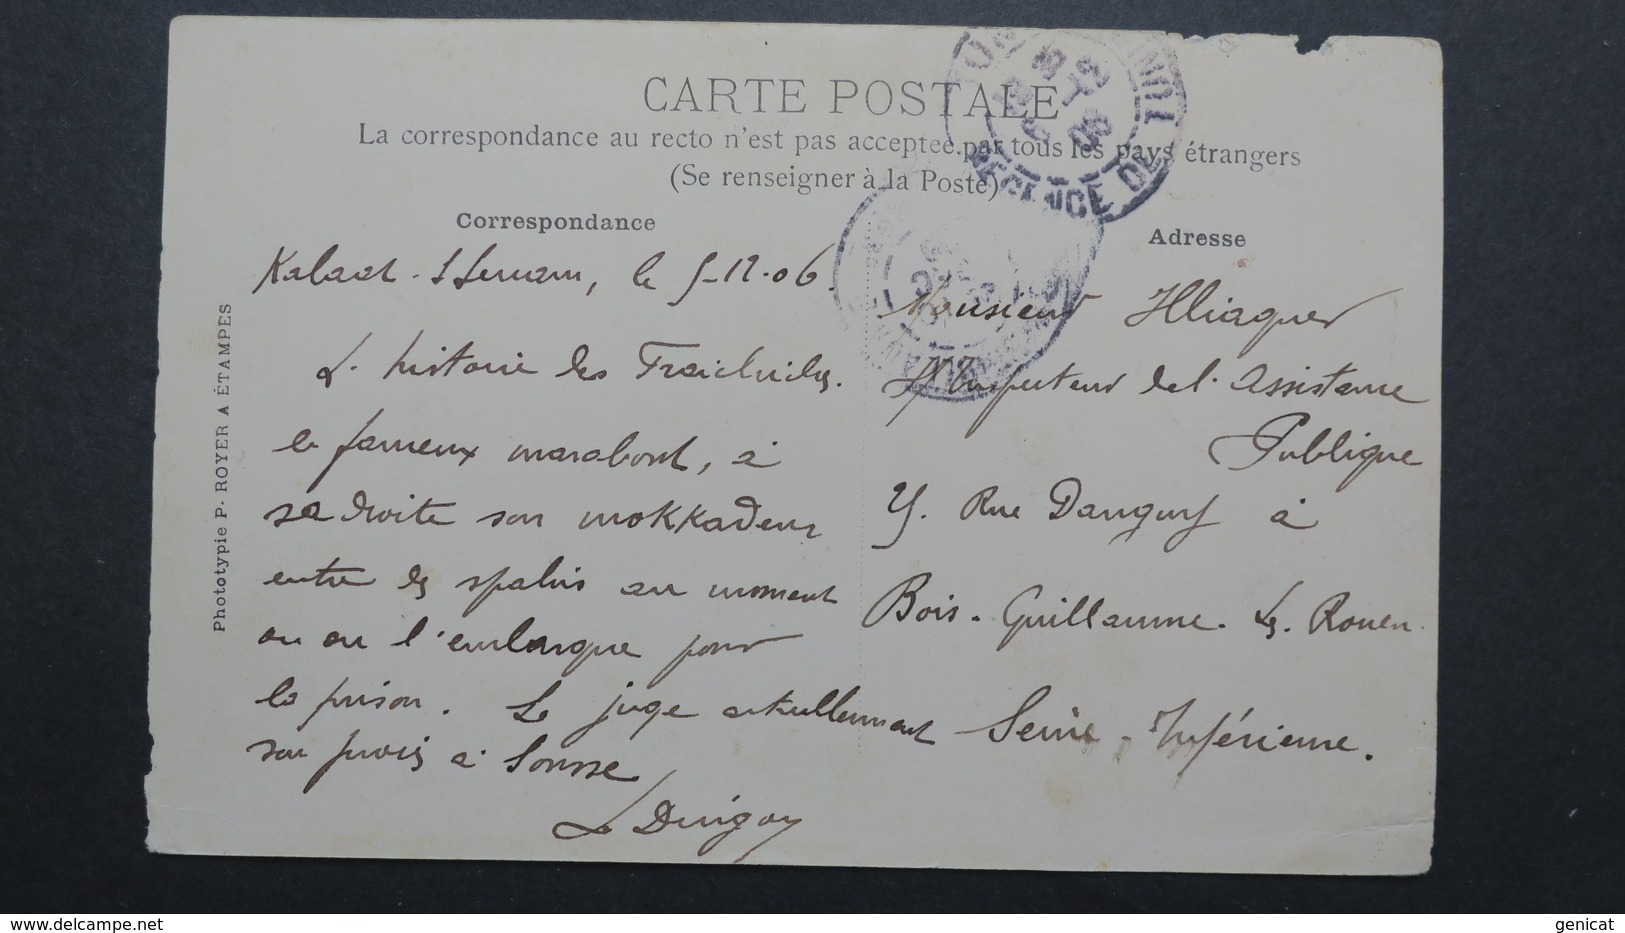 CARTE POSTALE
La correspondance au recto n'est pas acceptée par tous les pays étrangers
(Se renseigner à la Poste)
Correspondance
Kalaat-, le 5-12-06.
L'histoire des
le fameux marabout, à
sa droite son mokkadem
entre les spahis au moment
ou on l'embarque pour
la prison. Le juge actuellement
son procès à Sousse
Adresse
Monsieur
Inspecteur de l'Assistance
Publique
Rue Danguy à
Bois-Guillaume. Lès. Rouen.
Seine-Inférieure.
Phototypie P. ROYER A ÉTAMPES
RÉGENCE DE TUNIS
genicat
delcampe.net